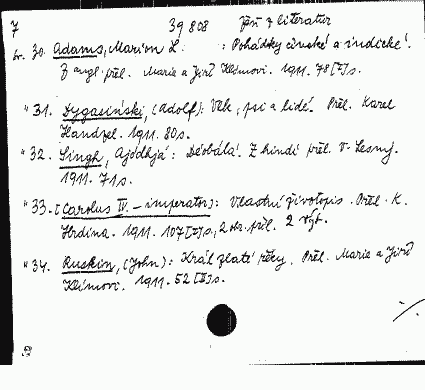 7 39 808 
br. 30. Adams, Marion L. : Pohádky čínské a indické.
Z angl. přel. Marie a Jiří Klímovi. 1911. 78 [I] s.
" 31. Dygasiński, (Adolf): Vlk, psi a lidé. Přel. Karel
Handzel. 1911. 80 s.
" 32. Singh, Ajódhjá: Déobálá. Z hindí přel. V. Lesný.
1911. 71 s.
" 33. [Carolus IV. - imperator]: Vlastní životopis. Přel. K.
Hrdina. 1911. 107 [I] s., 2 obr. příl. 2 výt.
" 34. Ruskin, (John): Král zlaté řeky. Přel. Marie a Jiří
Klímovi. 1911. 52 [II] s.
·/.